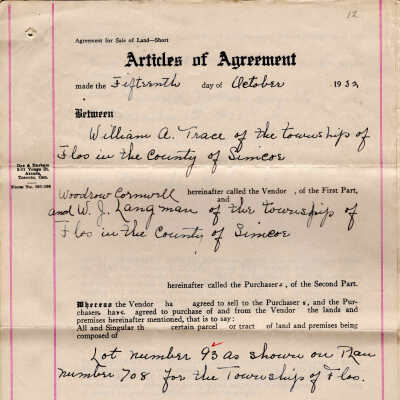 12
Agreement for Sale of Land—Short
Articles of Agreement
made the Fifteenth day of October 1932
Between
William A. Trace of the township of
Flos in the County of Simcoe
hereinafter called the Vendor , of the First Part,
and
Woodrow Cornwell
and W. J. Langman of the townships of
Flos in the County of Simcoe
hereinafter called the Purchasers, of the Second Part.
Whereas the Vendor ha agreed to sell to the Purchaser s, and the Pur-
chasers, have agreed to purchase of and from the Vendor the lands and
premises hereinafter mentioned, that is to say:
All and Singular th certain parcel or tract of land and premises being
composed of
Lot number 93 as shown on Plan
number 708 for the Township of Flos.
Yonge St.
Arcade,
Toronto, Can.